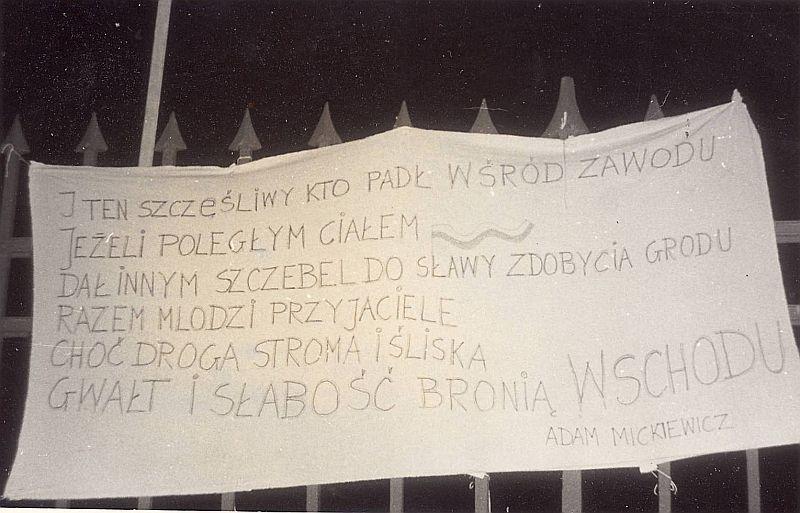 I TEN SZCZĘŚLIWY KTO PADŁ WŚRÓD ZAWODU
JEŻELI POLEGŁYM CIAŁEM
DAŁ INNYM SZCZEBEL DO SŁAWY ZDOBYCIA GRODU
RAZEM MŁODZI PRZYJACIELE
CHOĆ DROGA STROMA I ŚLISKA
GWAŁT I SŁABOŚĆ BRONIĄ WSCHODU
ADAM MICKIEWICZ